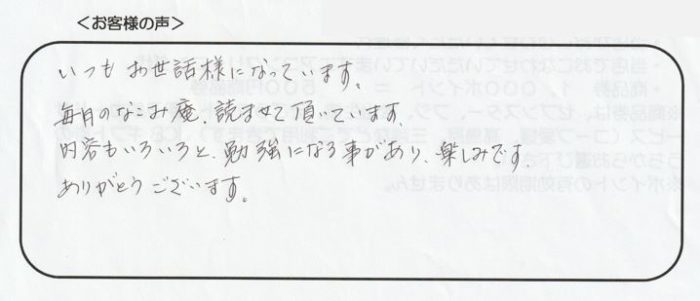 <お客様の声>
いつもお世話様になっています。
毎日のなごみ庵、読ませて頂いています。
内容もいろいろと、勉強になる事があり、楽しみです。
ありがとうございます。